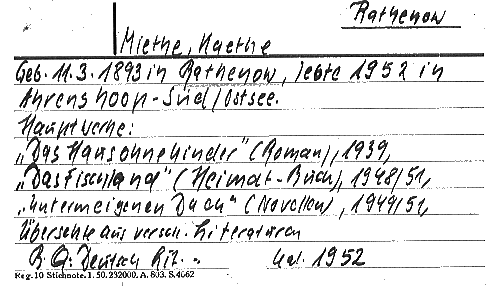 Rathenow
Miethe, Kaethe
Geb. 11.3.1893 in Rathenow, lebte 1952 in
Ahrenshoop-Süd/Ostsee.
Hauptwerke:
„Das Haus ohne Kinder" (Roman), 1939,
„Das Fischland" (Heimat-Buch), 1948/51,
„Unterm eigenen Dach" (Novellen), 1949/51,
Übersetzte aus versch. Literaturen
Deutsch Lit. 1952
Reg. 10 Stichnote. 1. 50. 232000. A. 803. S. 4662